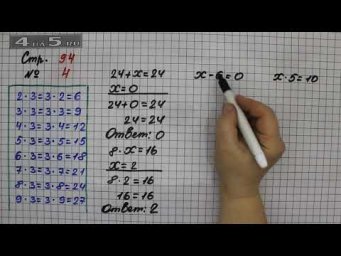 4 НА 5.RU
Стр. 94
№ 4
2·3=3·2=6
3·3=3·3=9
4·3=3·4=12
5·3=3·5=15
6·3=3·6=18
7·3=3·7=21
8·3=3·8=24
9·3=3·9=27
24+x=24
x=0
24+0=24
24=24
Ответ: 0
8·x=16
x=2
8·2=16
16=16
Ответ: 2
x-6=0
x·5=10